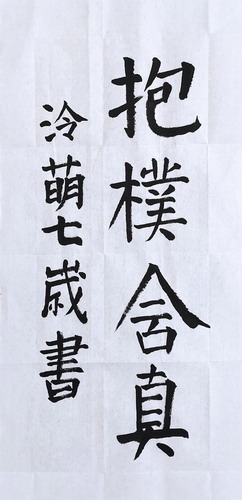 抱樸含真
泠萌七歲書